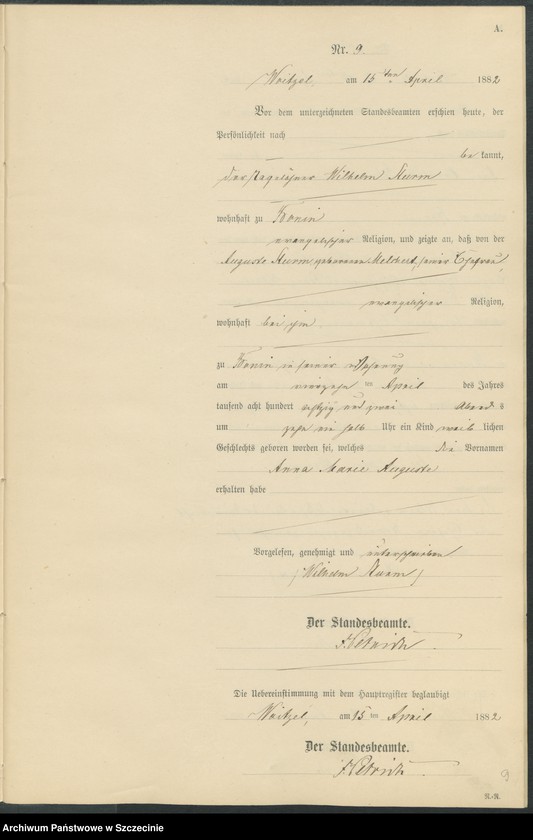 A.
Nr. 9.
Woitzel, am 15 ten April 1882
Vor dem unterzeichneten Standesbeamten erschien heute, der
Persönlichkeit nach
be kannt,
der Tagelöhner Wilhelm Sturm
wohnhaft zu Konin
evangelischer Religion, und zeigte an, daß von der
Auguste Sturm geborenen Melchert, seiner Ehefrau,
evangelischer Religion,
wohnhaft bei ihm
zu Konin in seiner Wohnung
am vierzehn ten April des Jahres
tausend acht hundert achtzig und zwei Abend s
um zehn ein halb Uhr ein Kind weib lichen
Geschlechts geboren worden sei, welches die Vornamen
Anna Marie Auguste
erhalten habe
Vorgelesen, genehmigt und unterschrieben
(Wilhelm Sturm)
Der Standesbeamte.
Die Uebereinstimmung mit dem Hauptregister beglaubigt
Woitzel, am 15 ten April 1882
Der Standesbeamte.
9
R.-R.
Archiwum Państwowe w Szczecinie